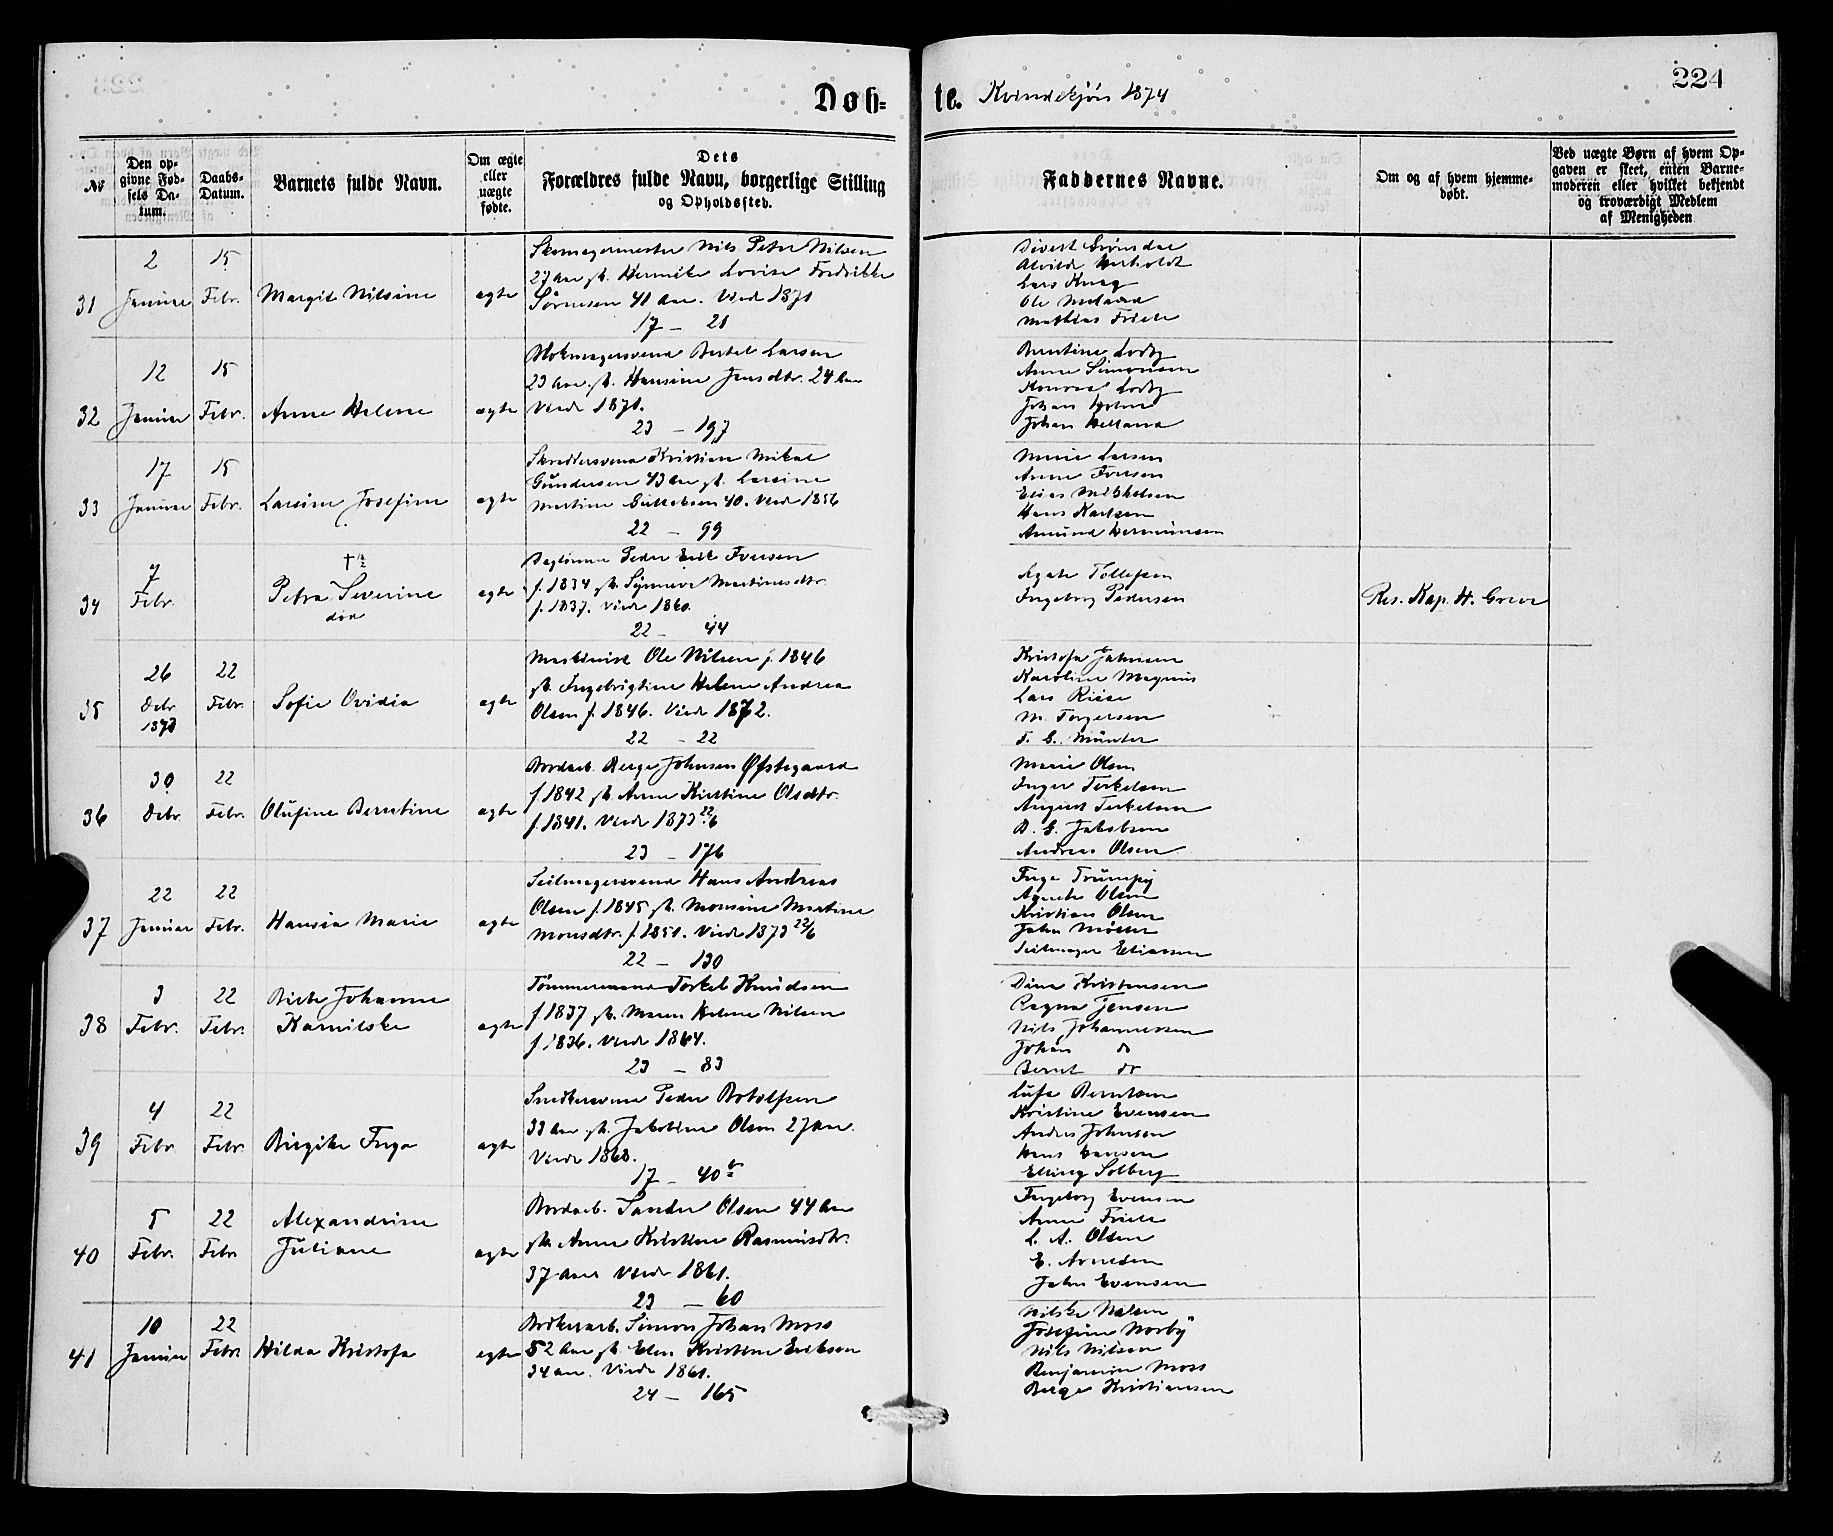 Døb=
te. Kvindekjøn 1874
224
No
Den op-
givne Fød-
sels Da-
tum.
Daabs-
Datum.
Barnets fulde Navn.
Om ægte
eller
uægte
fødte.
Dets
Forældres fulde Navn, borgerlige Stilling
og Opholdssted.
Faddernes Navne.
Om og af hvem hjemme-
døbt.
Ved uægte Børn af hvem Op-
gaven er skeet, enten Barne-
moderen eller hvilket bekjendt
og troværdigt Medlem
af Menigheden
31
2
Januar
15
Febr.
Margit Nilsine
ægte
Skomagermester Nils Petr Nilsen
27 Aar Henrike Lovise Fredrikke
Sørensen 41 Aar. Viede 1871
17 – 21
Alvilde
Lars Krag
Ole
Mathias Friele
32
12
Januar
15
Febr.
Anne Helene
ægte
Blokmagersvend Bertel Larsen
23 Aar Hansine Jensdtr. 24 Aar
Viede 1871.
23 – 197
Berntine Lodby
Anne Simonsen
Lodby
Johan Holm
Johan
33
17
Januar
15
Febr.
Larsine Josefine
ægte
Skreddersvend Kristian Mikal
Gundersen 43 Aar Larsine
Martine 40. Viede 1856
22 – 99
Marie Larsen
Anne Iversen
Elias Mikkelsen
Hans Karlsen
Amund Hermansen
34
7
Febr.
†
Petra Severine
død
ægte
Peder Erik Iversen
f. 1834 Synneve Martinusdtr.
f. 1837. Viede 1860.
22 – 44
Agate Tollefsen
Ingeborg Pedersen
Res. Kap. H. Greve
35
26
Debr
1873
22
Febr.
Sofie Ovidia
ægte
Maskinist Ole Nilsen f. 1846
Ingebrigtine Helene Andrea
Olsen f. 1846. Viede 1872.
22 – 22
Kristofa Johnsen
Karoline Magnus
Lars Riise
M. Torgersen
Münster
36
30
Debr.
22
Febr.
Olufine Berntine
ægte
Bordarb. Berge Johnsen Øfstegaard
f. 1842 Anne Kirstine Olsdtr.
f. 1841. Viede 1873 22/6
23 – 176
Marie Olsen
Inger Terkelsen
August Terkelsen
Jakobsen
Andreas Olsen
37
22
Januar
22
Febr.
Hansia Marie
ægte
Seilmagersvend Hans Andreas
Olsen f. 1845 Monsine Martine
Monsdtr. f. 1851. Viede 1873 22/6
22 – 130
Inga Trumpy
Agnete Olsen
Kristian Olsen
John Møller
Seilmager Eliassen
38
3
Febr.
22
Febr.
Birte Johanne
Kornilske
ægte
Tømmermand Torkel Knudsen
f. 1837 Maren Helene Nilsen
f. 1836. Viede 1864.
23 – 83
Dina Kristensen
Ragna Jensen
Nils Johannessen
Johan do
Bernt do
39
4
Febr
22
Febr.
Birgite Inga
ægte
Snedkersvend Peder Botolfsen
33 Aar Jakobine Olsen 27 Aar.
Viede 1868.
17 – 40 b
Lufa Berntsen
Kristine Evensen
Anders Johnsen
Hans Hansen
Elling Solberg
40
5
Febr.
22
Febr
Alexandrine
Juliane
ægte
Bordarb. Sander Olsen 44 Aar
Anne Kristine Rasmusdtr.
37 Aar Viede 1861.
23 – 60
Ingeborg Evensen
Anne Friele
L. A. Olsen
E. Arnesen
John Evensen
41
10
Januar
22
Febr
Hilda Kristofa
ægte
Simon Johan Moss
52 Aar Elen Kristine Eriksen
34 Aar. Viede 1861.
24 – 165
Nilske Nelsen
Josefine Norby
Nils Nilsen
Benjamin Moss
Berge Kristiansen